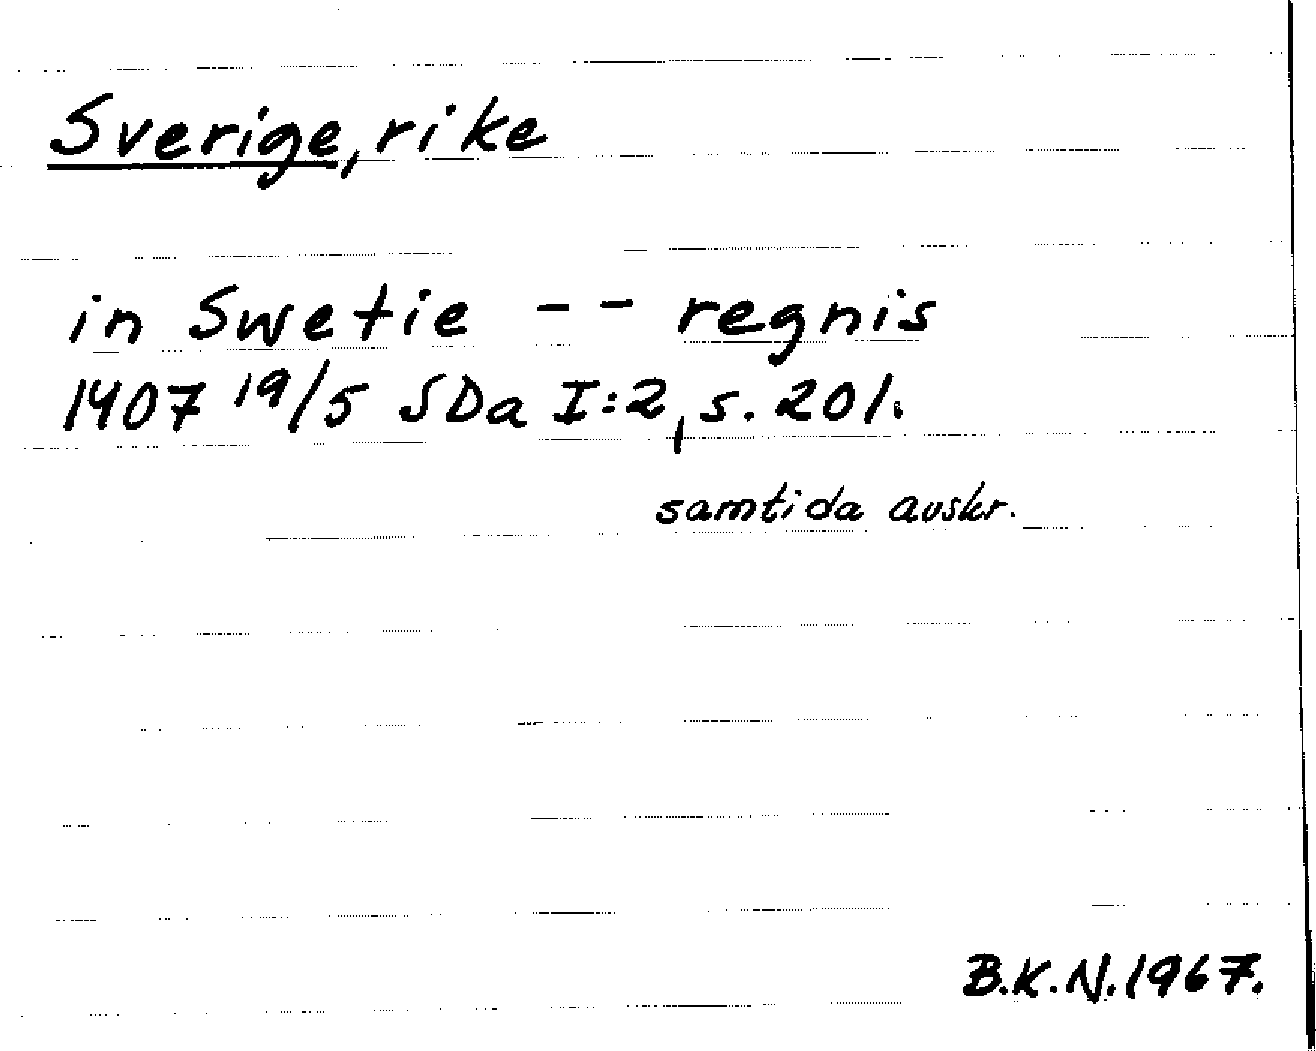 Sverige, rike
in Swetie -- regnis
1407 19/5 SDa I:2, s. 201.
samtida avskr.
B.K.N. 1967.